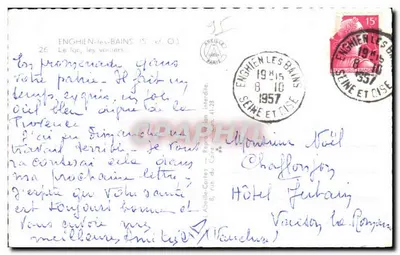 ENGHIEN-les-BAINS (S.-et-O.)
26
Le lac, les voiliers
En promenade dans
votre patrie. Il fait un
temps exquis, un
ciel bleu digne de la
Provence
J'ai eu dimanche un
travail terrible. Je vous
raconterai cela dans
ma prochaine lettre.
J'espère que votre santé
est toujours bonne et
vous envoie mes
meilleures amitiés
ENGHIEN LES BAINS
19H15
8-10
1957
SEINE ET OISE
15F
ENGHIEN LES BAINS
19H15
8-10
1957
SEINE ET OISE
Monsieur Noël
Chaffonjon
Hôtel
Vaison la Romaine
(Vaucluse)